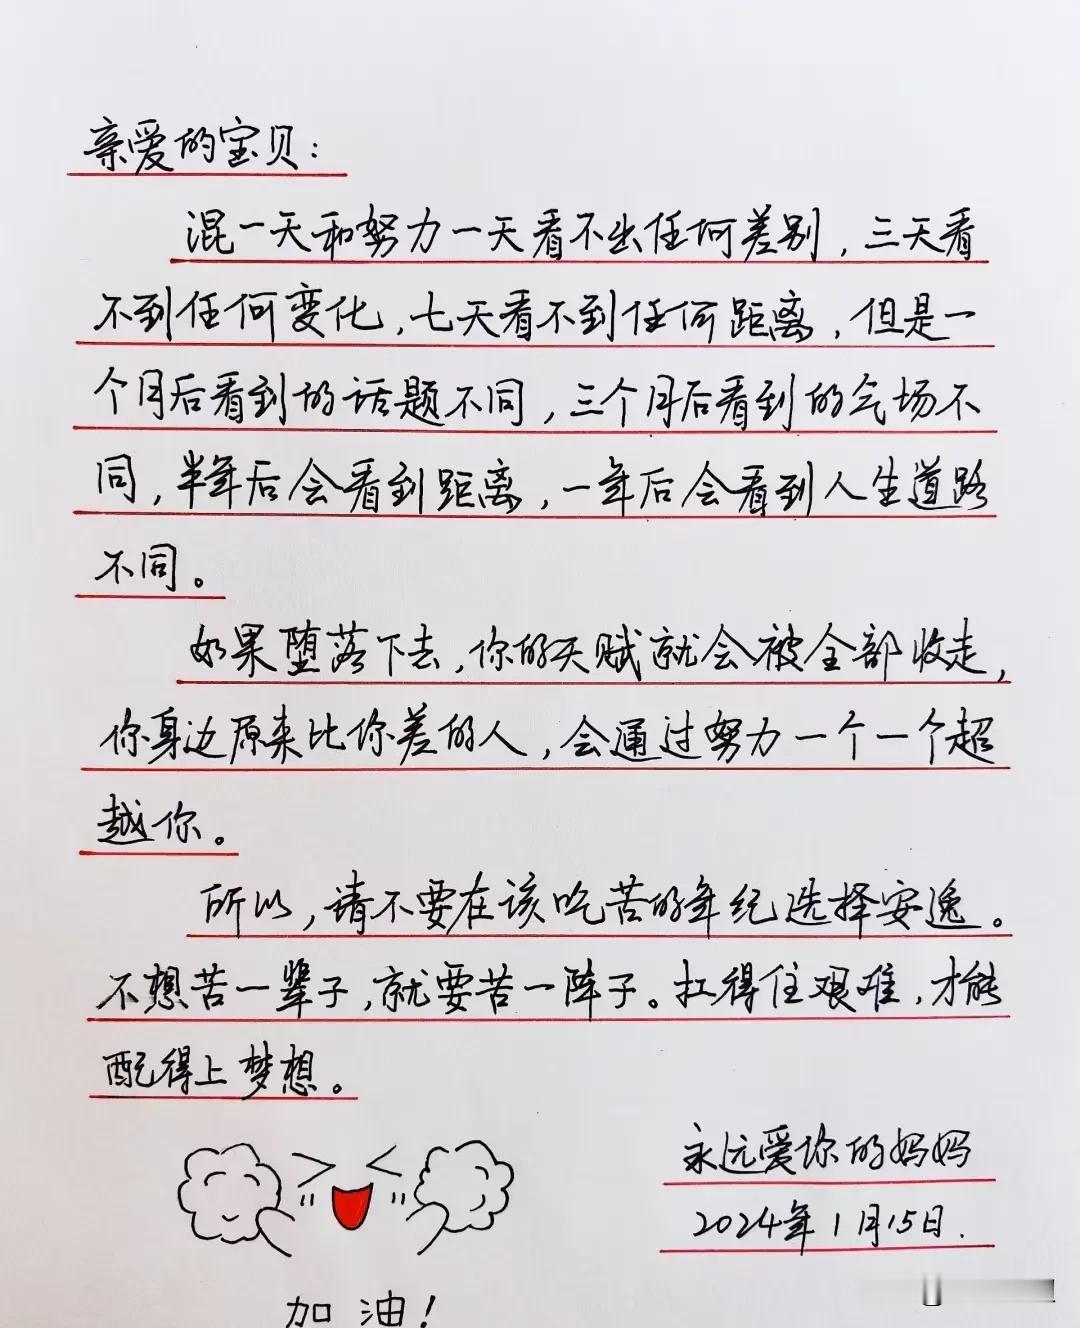 亲爱的宝贝：
混一天和努力一天看不出任何差别，三天看
不到任何变化，七天看不到任何距离，但是一
个月后看到的话题不同，三个月后看到的气场不
同，半年后会看到距离，一年后会看到人生道路
不同。
如果堕落下去，你的天赋就会被全部收走，
你身边原来比你差的人，会通过努力一个一个超
越你。
所以，请不要在该吃苦的年纪选择安逸。
不想苦一辈子，就要苦一阵子。扛得住艰难，才能
配得上梦想。
永远爱你的妈妈
2024年1月15日.
加油！